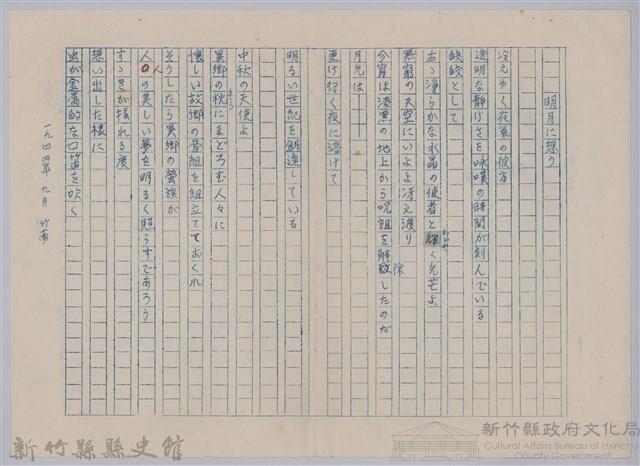 明月に想う
冷えゆく夜気の彼方
透明な静けさを咏嘆の時間が刻んでいる
皎皎として
あゝ淨らかな水晶の使者と輝く光芒よ
無窮の天空にいよよ冴え渡り
今宵は漆黒の地上から呪詛を解除したのだ
月光は――
更け行く夜に溶けて
明るい世紀を鍛造している
中秋の天使よ
異郷の秋にまどろむ人々に
懐しい故郷の番組を組立てておくれ
そうしたら異郷の蛮族が
人人の美しい夢を明るく照らすであろう
すゝきが揺れる度
想い出した様に
虫が金属的な口笛を吹く
一九四四年 九月 竹南
新竹縣縣史館
新竹縣政府文化局
Cultural Affairs Bureau of Hsinchu
County Government